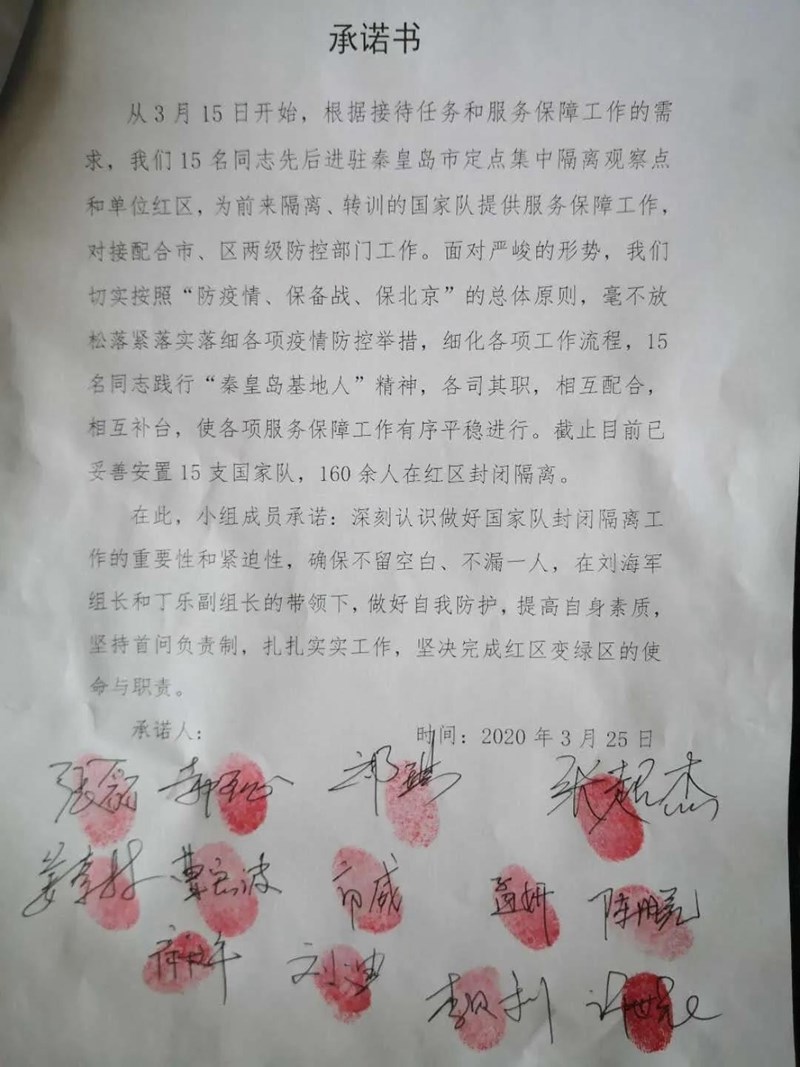 承诺书
从3月15日开始，根据接待任务和服务保障工作的需
求，我们15名同志先后进驻秦皇岛市定点集中隔离观察点
和单位红区，为前来隔离、转训的国家队提供服务保障工作，
对接配合市、区两级防控部门工作。面对严峻的形势，我们
切实按照“防疫情、保备战、保北京”的总体原则，毫不放
松落紧落实落细各项疫情防控举措，细化各项工作流程，15
名同志践行“秦皇岛基地人”精神，各司其职，相互配合，
相互补台，使各项服务保障工作有序平稳进行。截止目前已
妥善安置15支国家队，160余人在红区封闭隔离。
在此，小组成员承诺：深刻认识做好国家队封闭隔离工
作的重要性和紧迫性，确保不留空白、不漏一人，在刘海军
组长和丁乐副组长的带领下，做好自我防护，提高自身素质，
坚持首问负责制，扎扎实实工作，坚决完成红区变绿区的使
命与职责。
承诺人： 时间：2020年3月25日
张超杰
孟妍